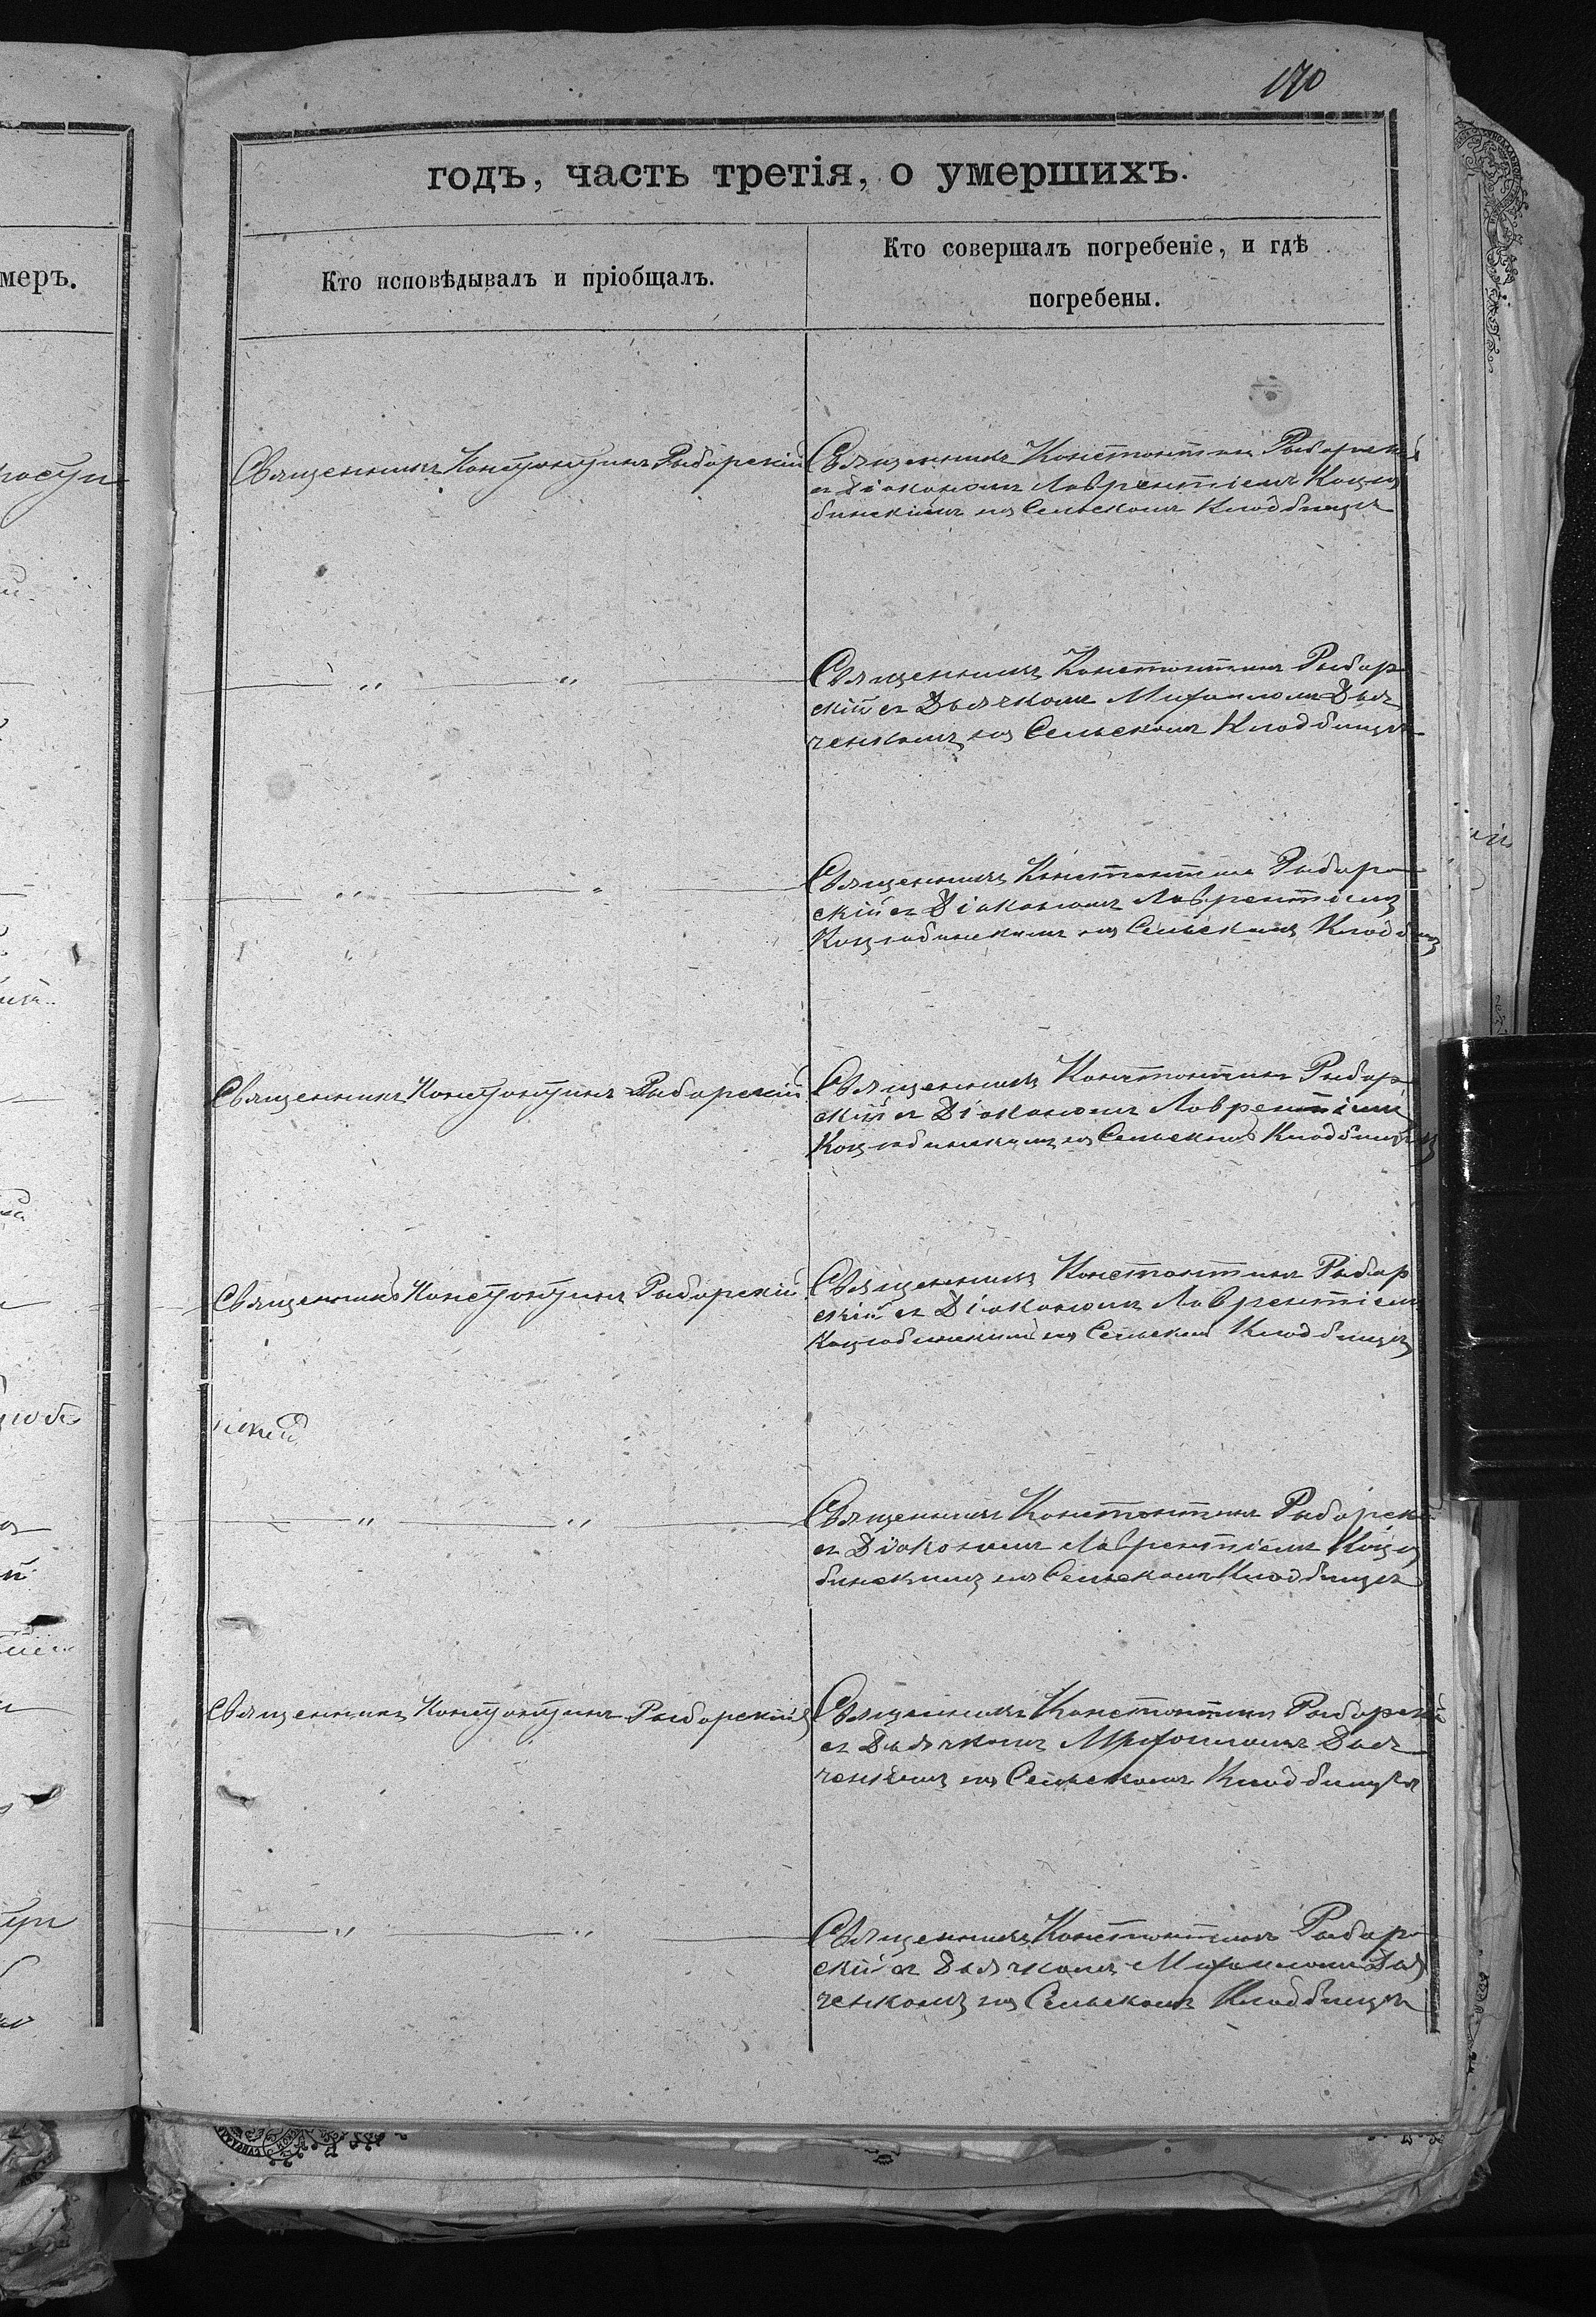 170
годъ, часть третія, о умершихъ.
меръ.
Кто исповѣдывалъ и пріобщалъ.
Кто совершалъ погребеніе, и гдѣ
погребены.
Священникъ Константинъ Рыбарскій
Священникъ Константин Рыбарскій
съ Діакономъ Лаврентіемъ Коцю
бинскимъ на Сельскомъ Кладбищѣ
— „ — „ —
Священникъ Константинъ Рыбар
скій съ Дьячкомъ Михаиломъ Дья
ченкомъ на Сельскомъ Кладбищѣ
— „ — „ —
Священникъ Константинъ Рыбар
скій съ Діакономъ Лаврентіемъ
Коцюбинскимъ на Сельскомъ Кладбищѣ
Священникъ Константинъ Рыбарскій
Священникъ Константинъ Рыбар
скій съ Діакономъ Лаврентіемъ
Коцюбинскимъ на Сельскомъ Кладбищѣ
Священникъ Константинъ Рыбарскій
Священникъ Константинъ Рыбар
скій съ Діакономъ Лаврентіем
Коцюбинскимъ на Сельском Кладбищѣ
— „ — „ —
Священникъ Константинъ Рыбарскі
съ Діакономъ Лаврентіемъ Коцю
бинскимъ на Сельскомъ Кладбищѣ
Священникъ Константинъ Рыбарскій
Священникъ Константинъ Рыбарскій
съ Дьячкомъ Михаиломъ Дья
ченкомъ на Сельскомъ Кладбищѣ
— „ — „ —
Священникъ Константинъ Рыбар
скій съ Дьячкомъ Михаиломъ Дья
ченкомъ на Сельскомъ Кладбищѣ